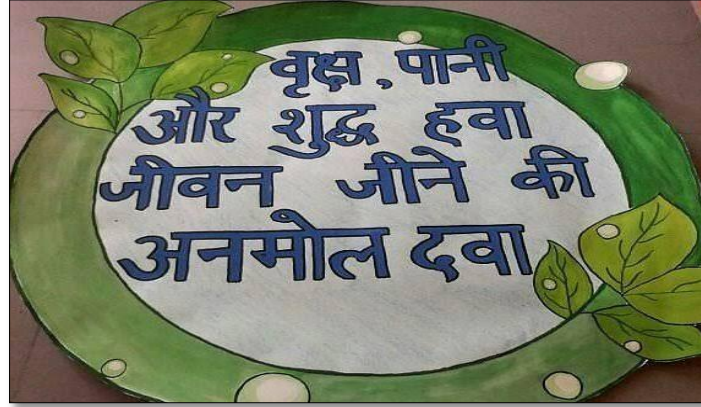 वृक्ष, पानी
और शुद्ध हवा
जीवन जीने की
अनमोल दवा